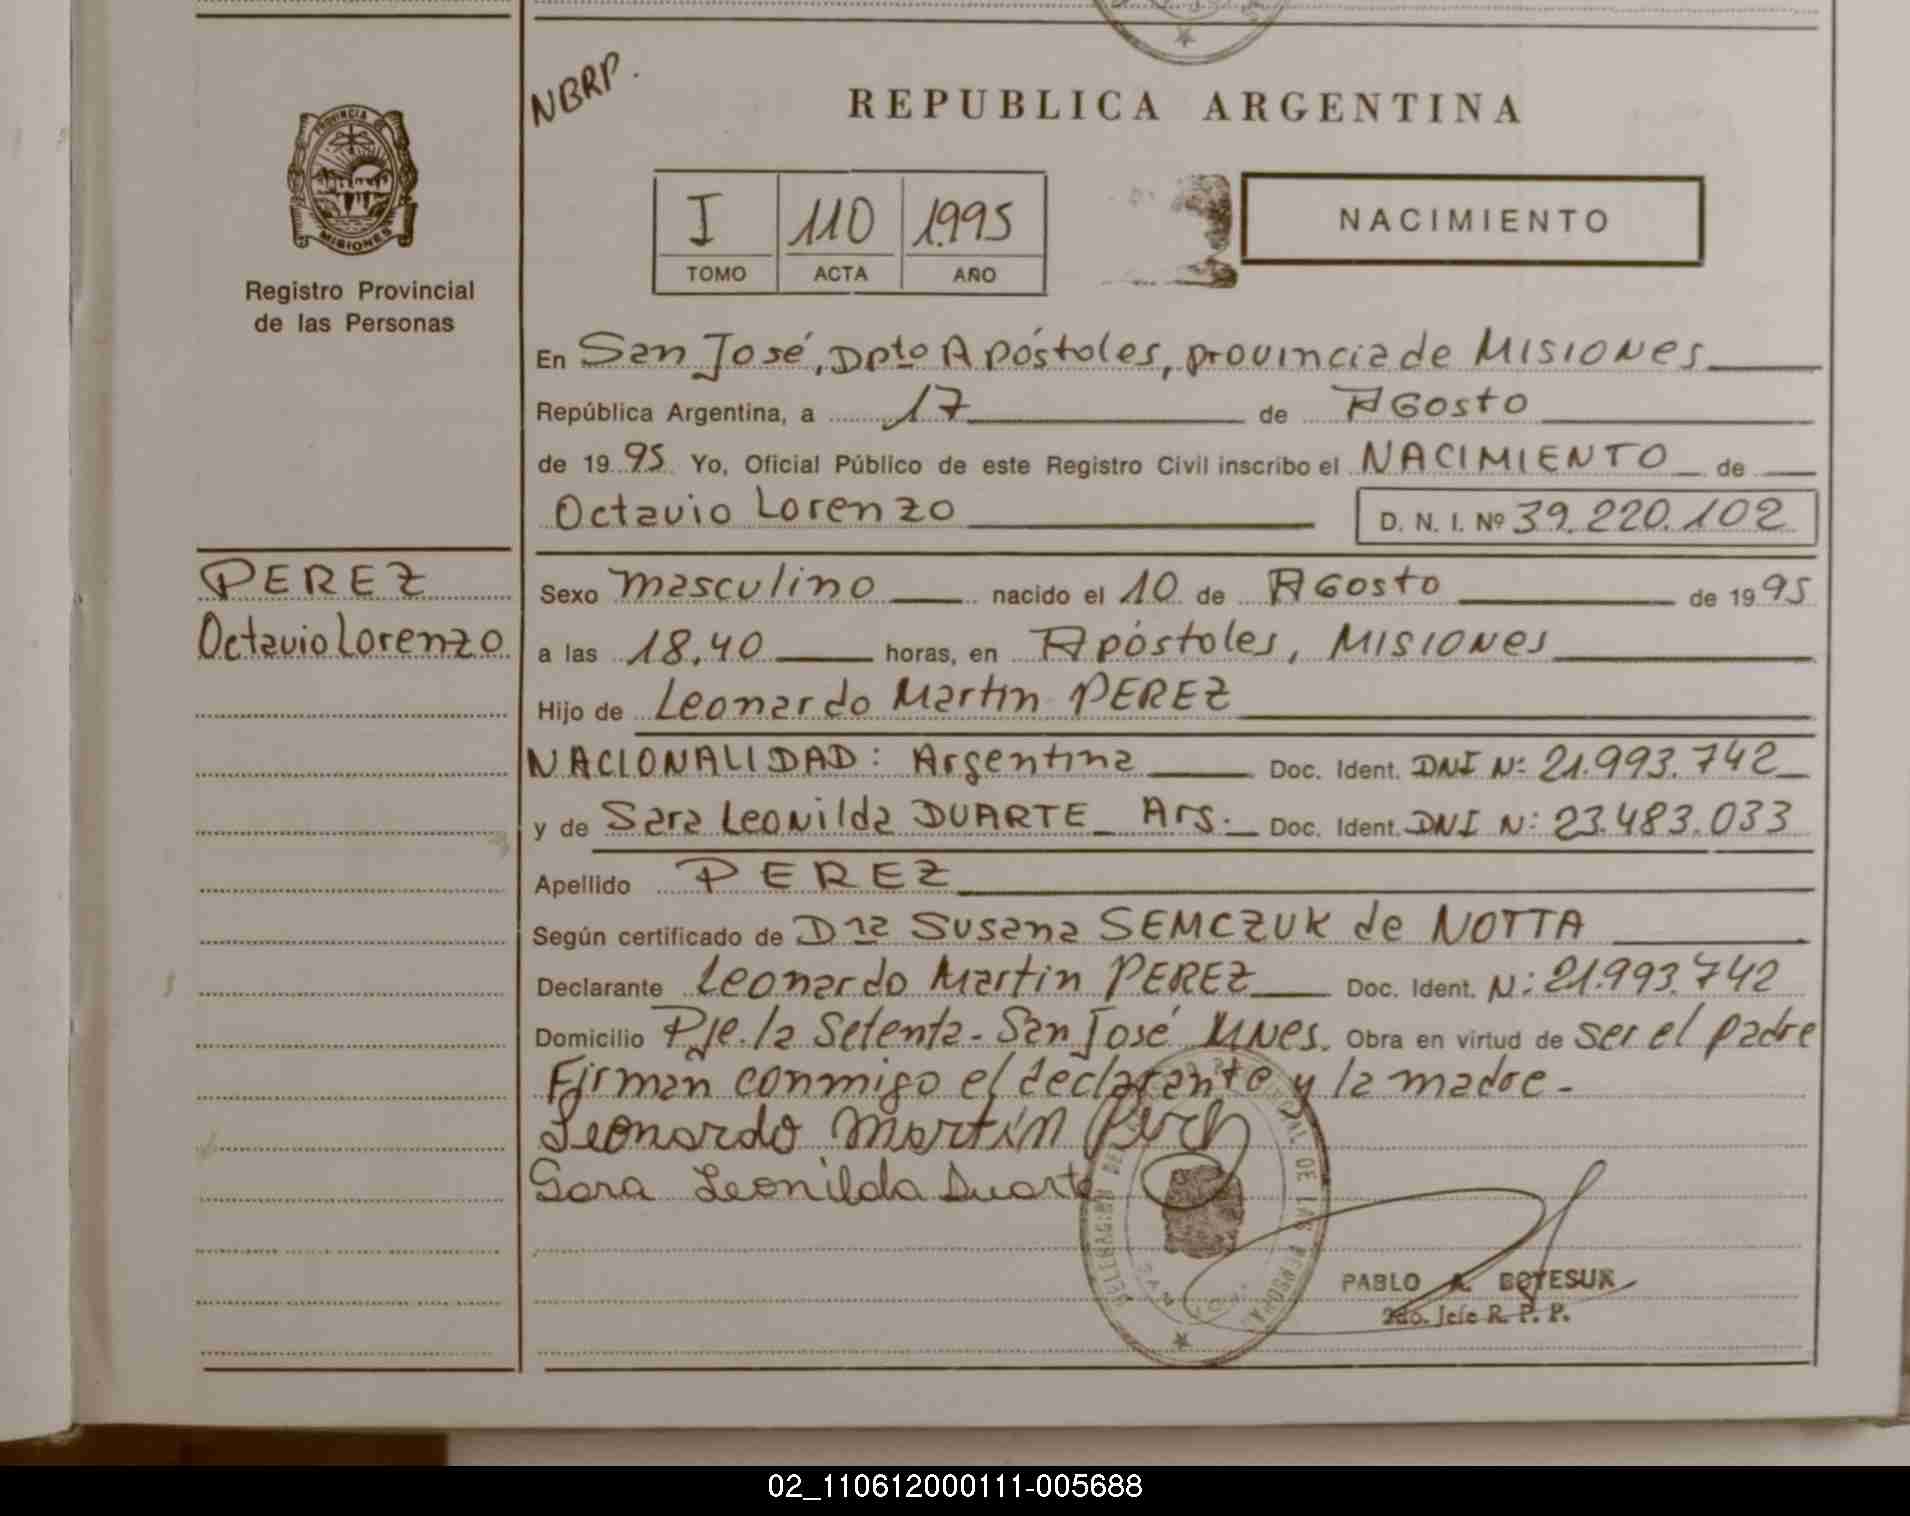 NBRP.
REPUBLICA ARGENTINA
PROVINCIA DE
MISIONES
Registro Provincial
de las Personas
I 110 1.995
TOMO ACTA AÑO
NACIMIENTO
En San José, Dpto Apóstoles, provincia de MISIONes
República Argentina, a 17 de AGosto
de 1995 Yo, Oficial Público de este Registro Civil inscribo el NACIMIENTO de
Octavio Lorenzo D. N. I. Nº 39.220.102
PEREZ
Octavio Lorenzo
Sexo masculino nacido el 10 de AGosto de 1995
a las 18.40 horas, en Apóstoles, MISIONes
Hijo de Leonardo Martin PEREZ
NACIONALIDAD: Argentina Doc. Ident. DNI N: 21.993.742
y de Sara Leonilda DUARTE Arg. Doc. Ident. DNI N: 23.483.033
Apellido PEREZ
Según certificado de Dra Susana SEMCZUK de NOTTA
Declarante Leonardo Martin PEREZ Doc. Ident. N: 21.993.742
Domicilio Pje. la Setenta - San José Mnes. Obra en virtud de ser el padre
Firman conmigo el declarante y la madre.-
Leonardo Martín Perez
Sara Leonilda Duarte
PABLO A. BOTESUK
2do. Jefe R. P. P.
02_110612000111-005688